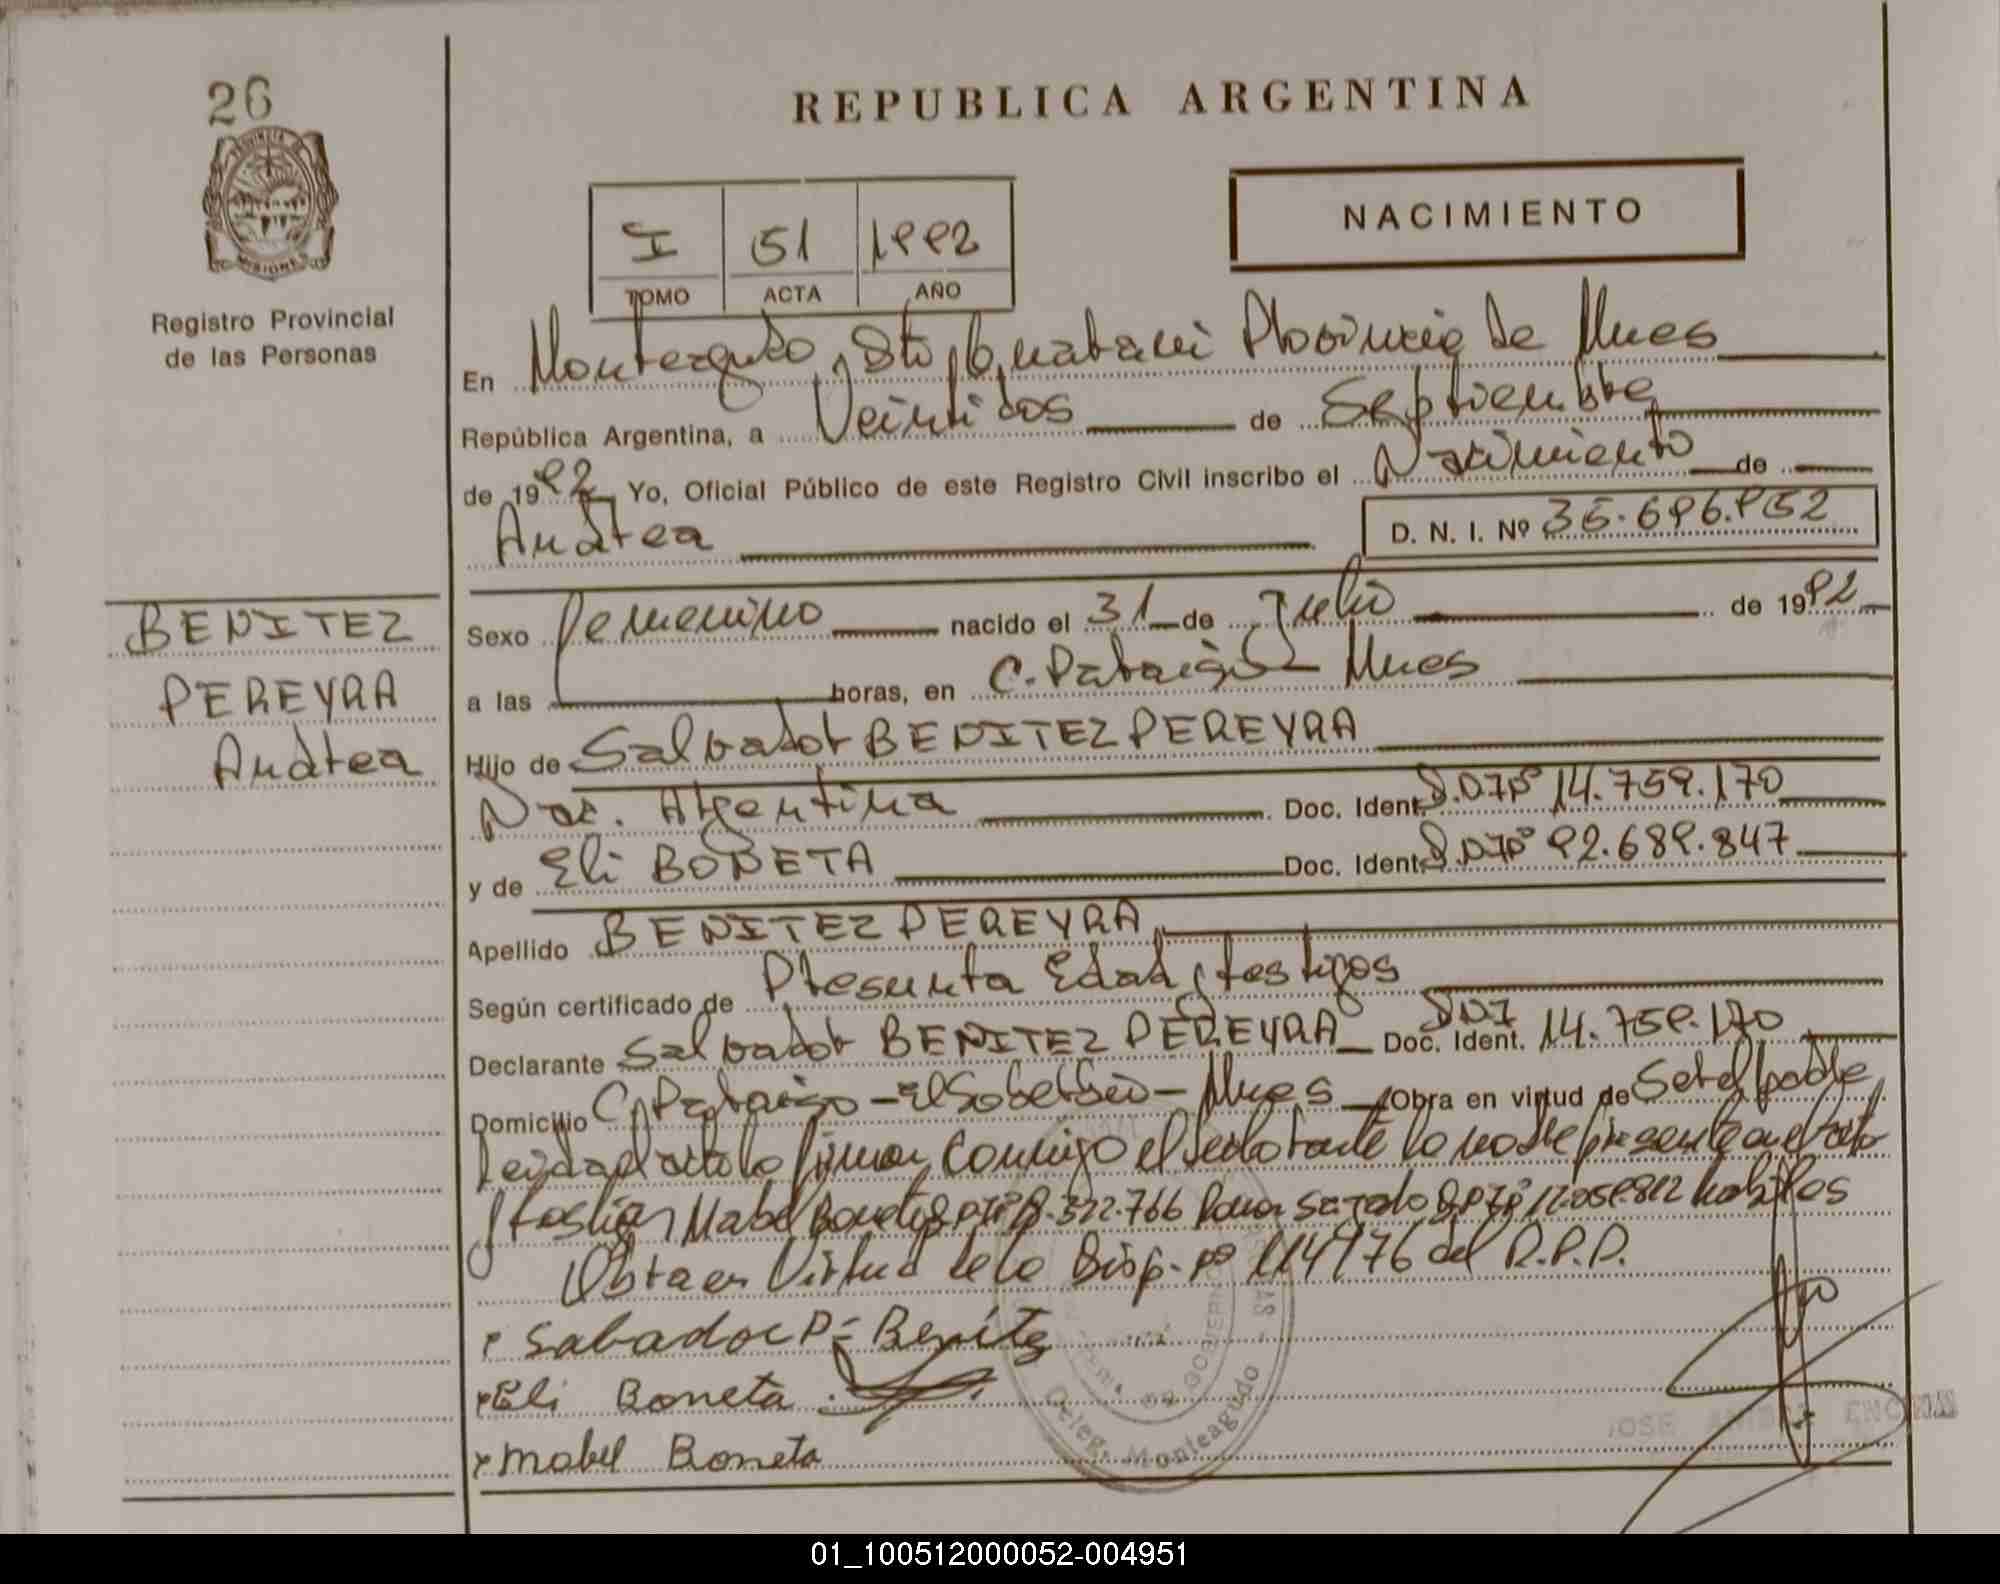 26
REPUBLICA ARGENTINA
PROVINCIA DE MISIONES
Registro Provincial
de las Personas
I 51 1992
TOMO ACTA AÑO
NACIMIENTO
En Monteagudo, Dto Guarani Provincia de Mnes
República Argentina, a Veintidos de Septiembre
de 1992 Yo, Oficial Público de este Registro Civil inscribo el Nacimiento de
Andrea D. N. I. Nº 35.696.952
BENITEZ
PEREYRA
Andrea
Sexo Femenino nacido el 31 de Julio de 1992
a las horas, en C. Paraiso - Mnes
Hijo de Salvador BENITEZ PEREYRA
Nac. Argentina Doc. Ident. D.N.Iº 14.759.170
y de Eli BONETA Doc. Ident. D.N.Iº 92.689.847
Apellido BENITEZ PEREYRA
Según certificado de Presunta Edad y testigos
Declarante Salvador BENITEZ PEREYRA Doc. Ident. DNI 14.759.170
Domicilio C. Paraiso - El Soberbio - Mnes Obra en virtud de Ser el padre
Leida el acta la firman conmigo el declarante la madre presente en el acto
y testigos Mabel Boneta 322.766 habiles
Obra en Virtud de la Disp. nº 114/76 del R.P.P.
x Salvador P. Benitez
x Eli Boneta
x Mabel Boneta
Deleg. Monteagudo
JOSE ANIBAL ENCINA
01_100512000052-004951